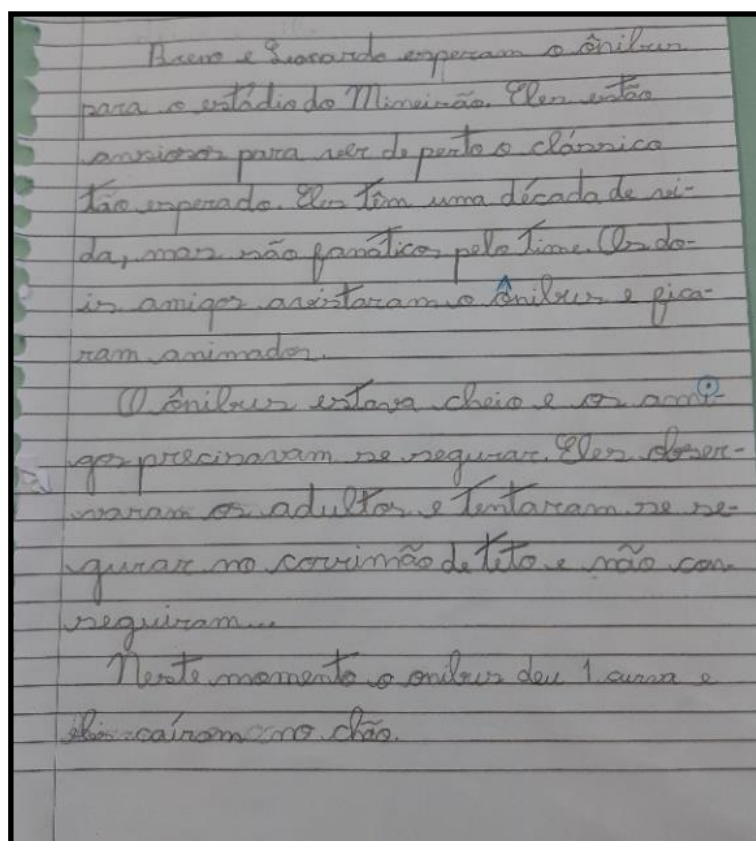 Breno e Leonardo esperam o ônibus
para o estádio do Mineirão. Eles estão
ansiosos para ver de perto o clássico
tão esperado. Eles têm uma década de vi-
da, mas são fanáticos pelo time. Os do-
is amigos avistaram o ônibus e fica-
ram animados.
O ônibus estava cheio e os ami-
gos precisavam se segurar. Eles obser-
varam os adultos e tentaram se se-
gurar no corrimão de teto e não con-
seguiram...
Neste momento o onibus deu 1 curva e
eles caírom no chão.